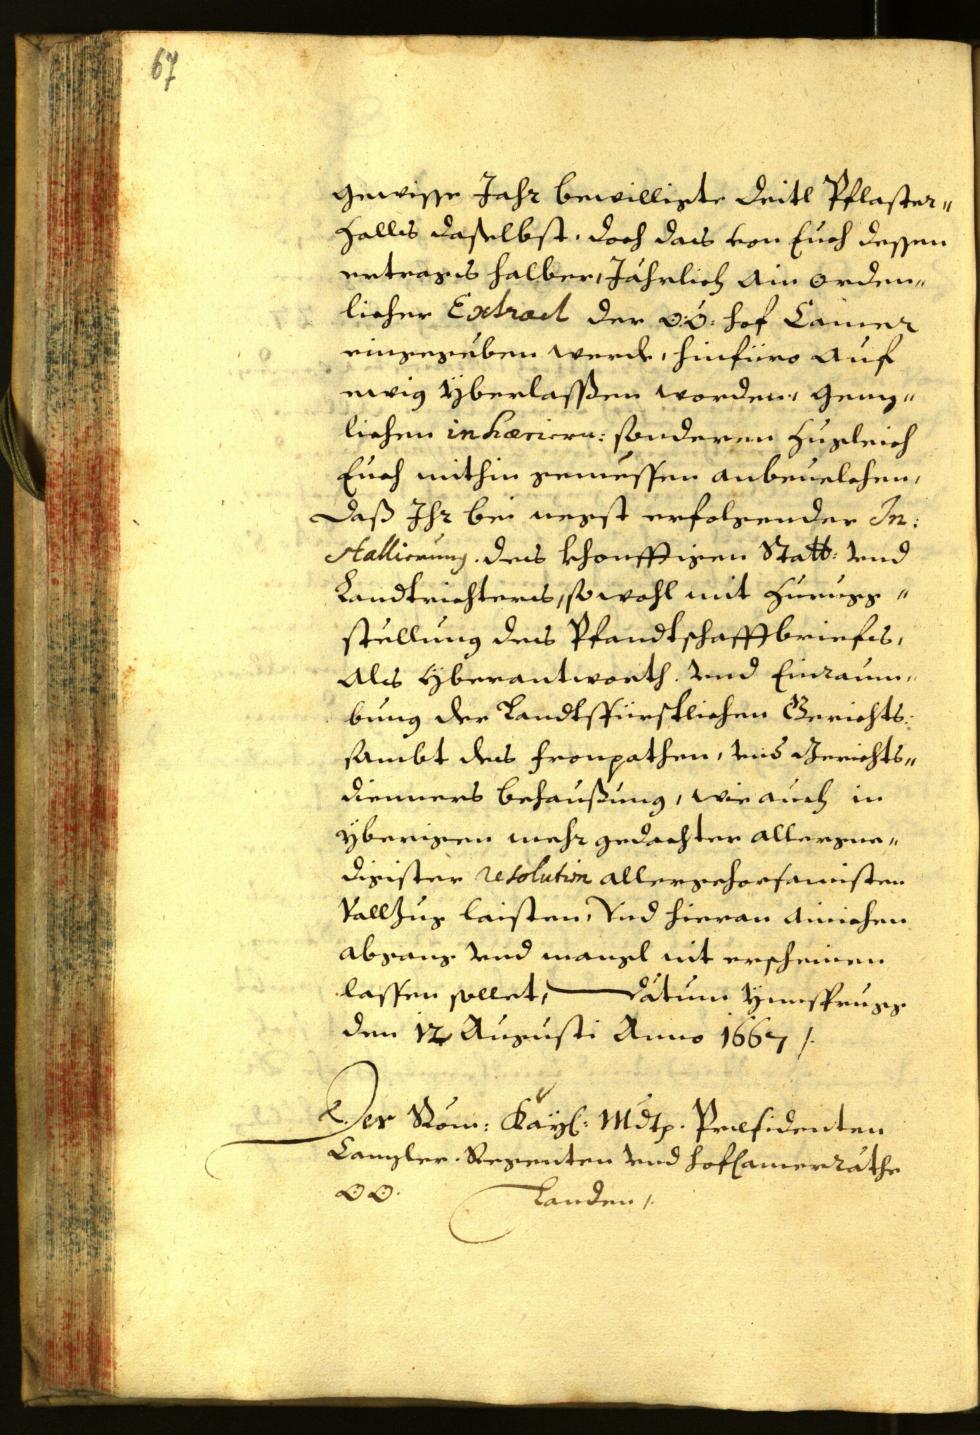 67
gewisse Jahr bewilligte dritl Pflaster„
Zolls daselbst, doch das von Euch dessen
ertrags halber, Jährlich ain orden„
licher Extract der OÖ: hof Camer
eingegeben werde, hinfüro auf
ewig yberlassen worden,
lichen inhæriern: sonderen zugleich
Euch mithin gemessen anbeuelchen,
Daß Ihr bei negst erfolgender In:
stallierung des khonfftigen Statt: vnd
Landtrichters, sowohl mit zurugg„
stellung des Pfandtschafftbriefs,
Als yberantworth: vnd Einraum„
bung der Landtsfürstlichen Gerichts:
sambt des fronpothen, vnd Gerichts„
dienners behaußung, wie auch in
yberigen mehr gedachter allergne„
digister resolution allergehorsamisten
Vollzug laisten, Vnd hieran ainichen
abgang vnd mangl nit erscheinen
lassen sollet, Datum Ynnsprugg
den 12 Augusti Anno 1667 /.
Der Röm: Kayl: Mdtp. Præsidenten
Canzler. Regenten vnd hofCamerräthe
OÖ. Landen /.